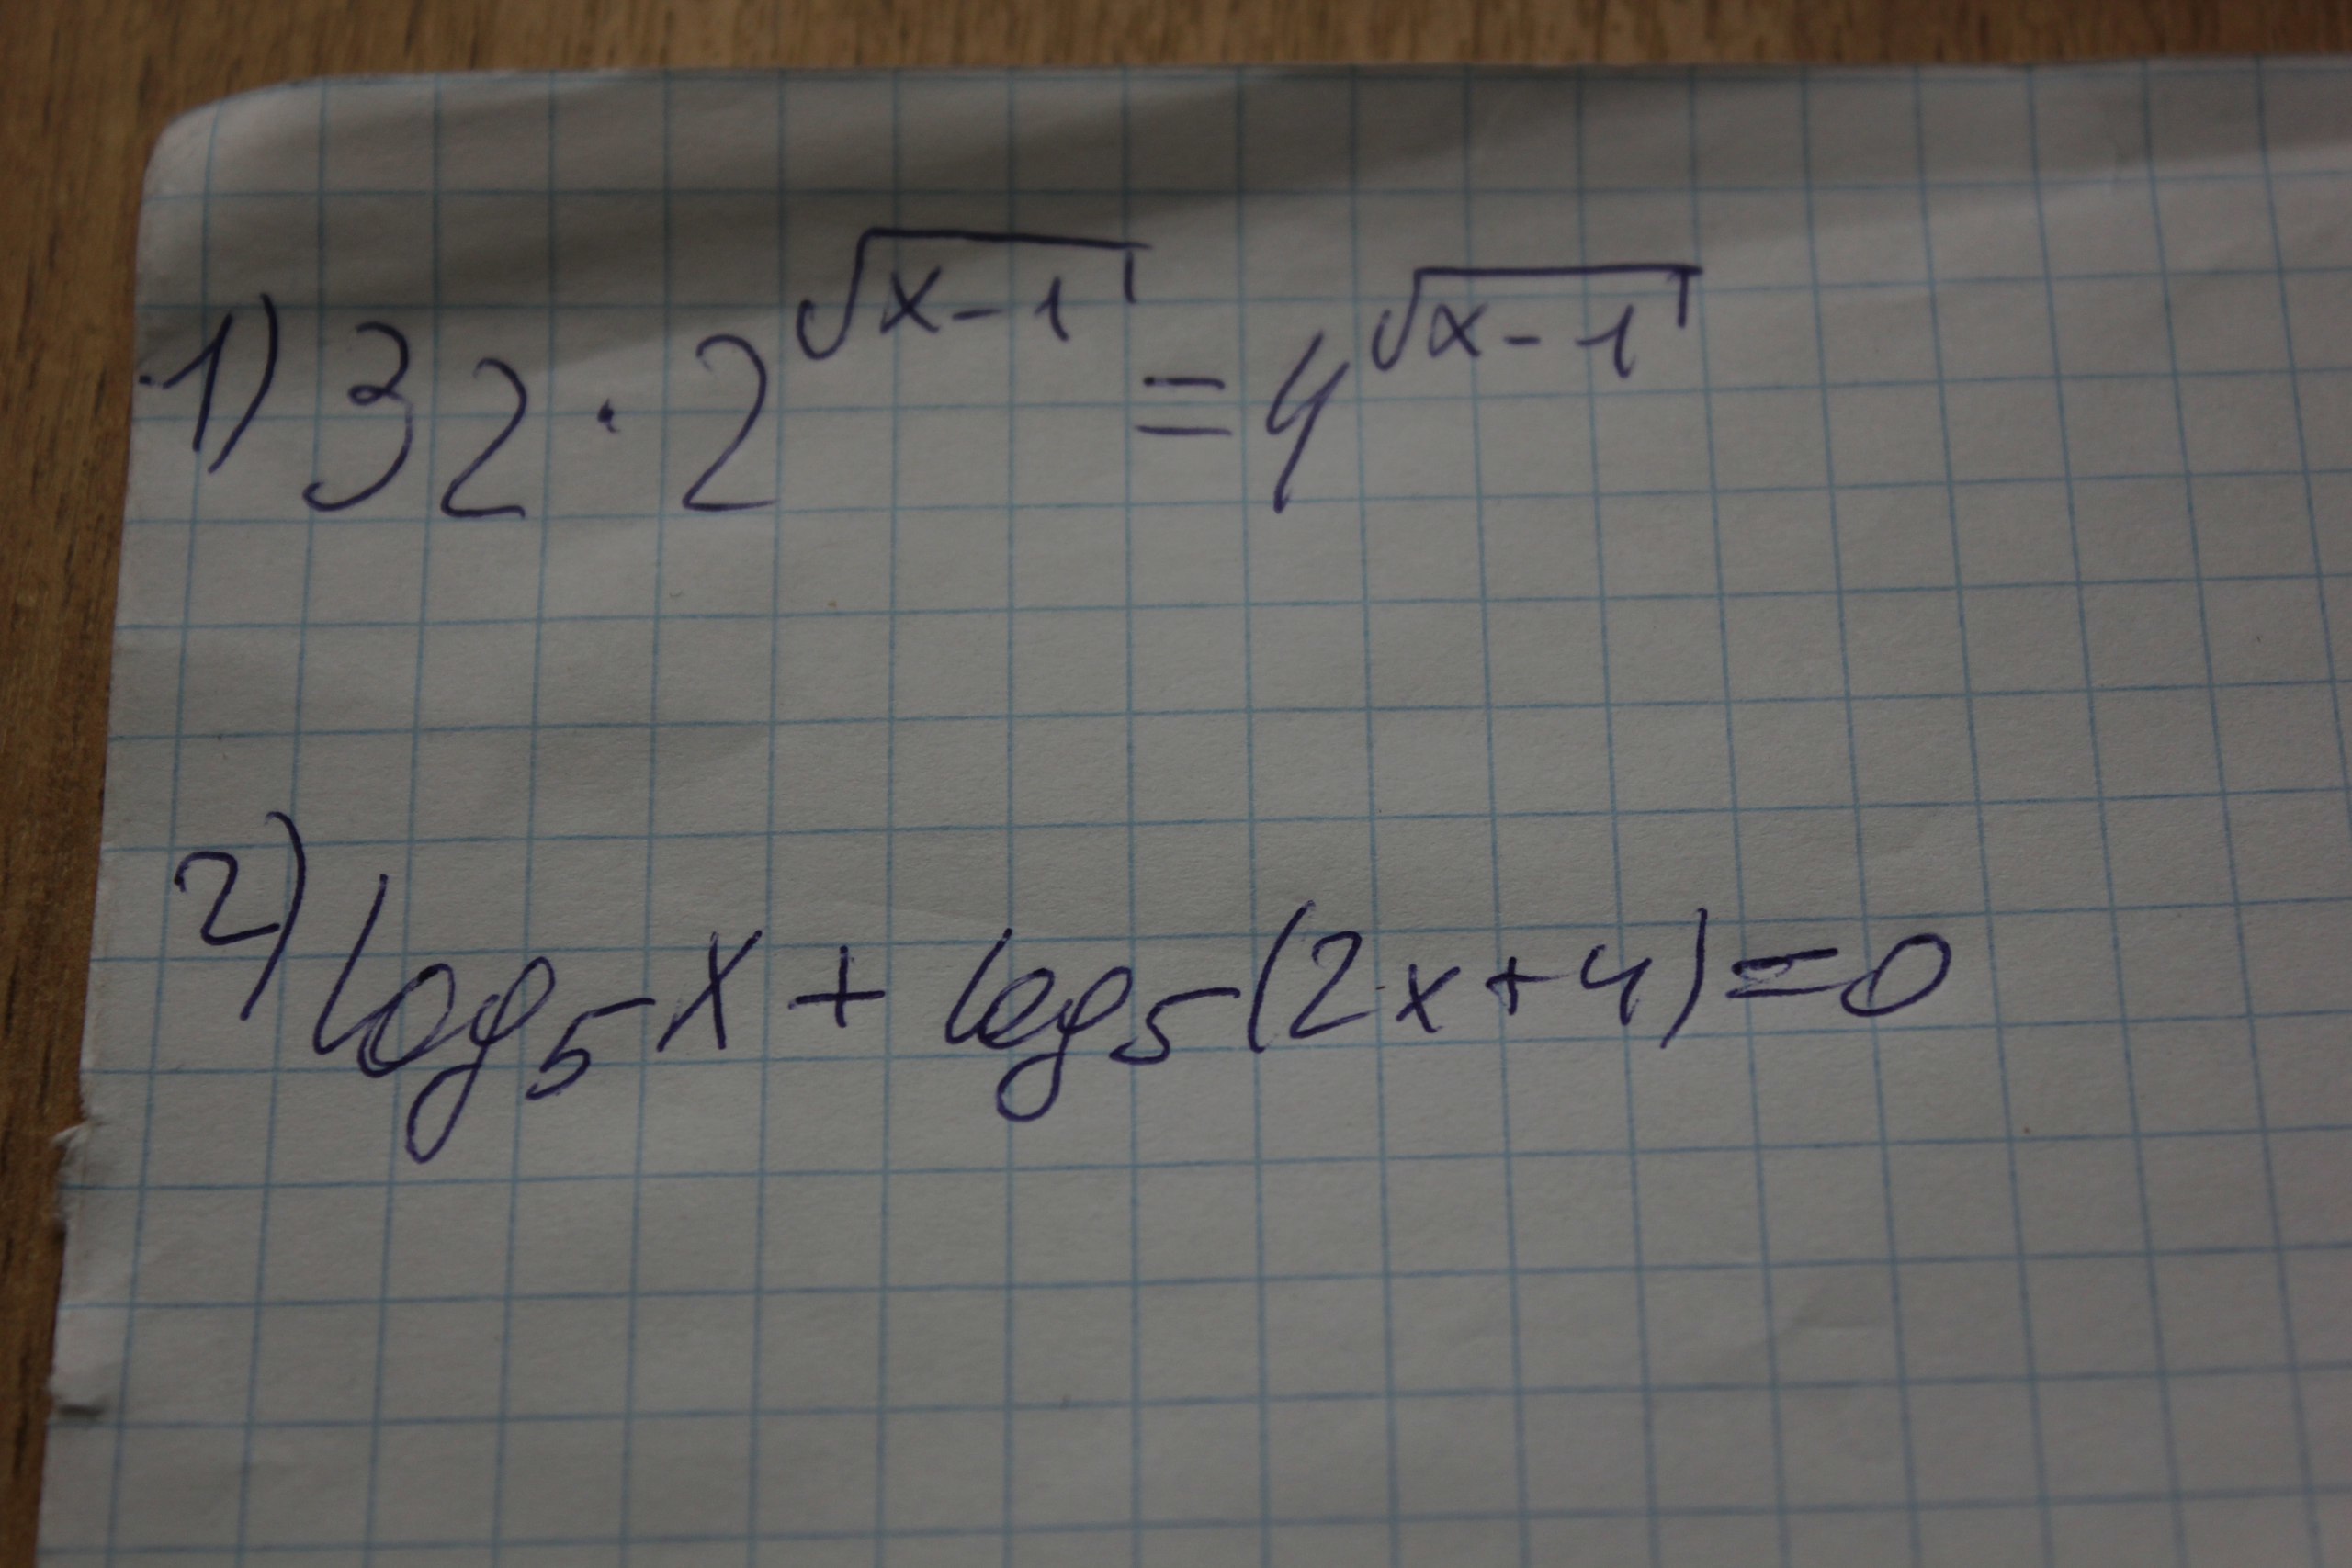 1) 32 · 2^√(x-1) = 4^√(x-1)
2) log₅x + log₅(2x+4)=0